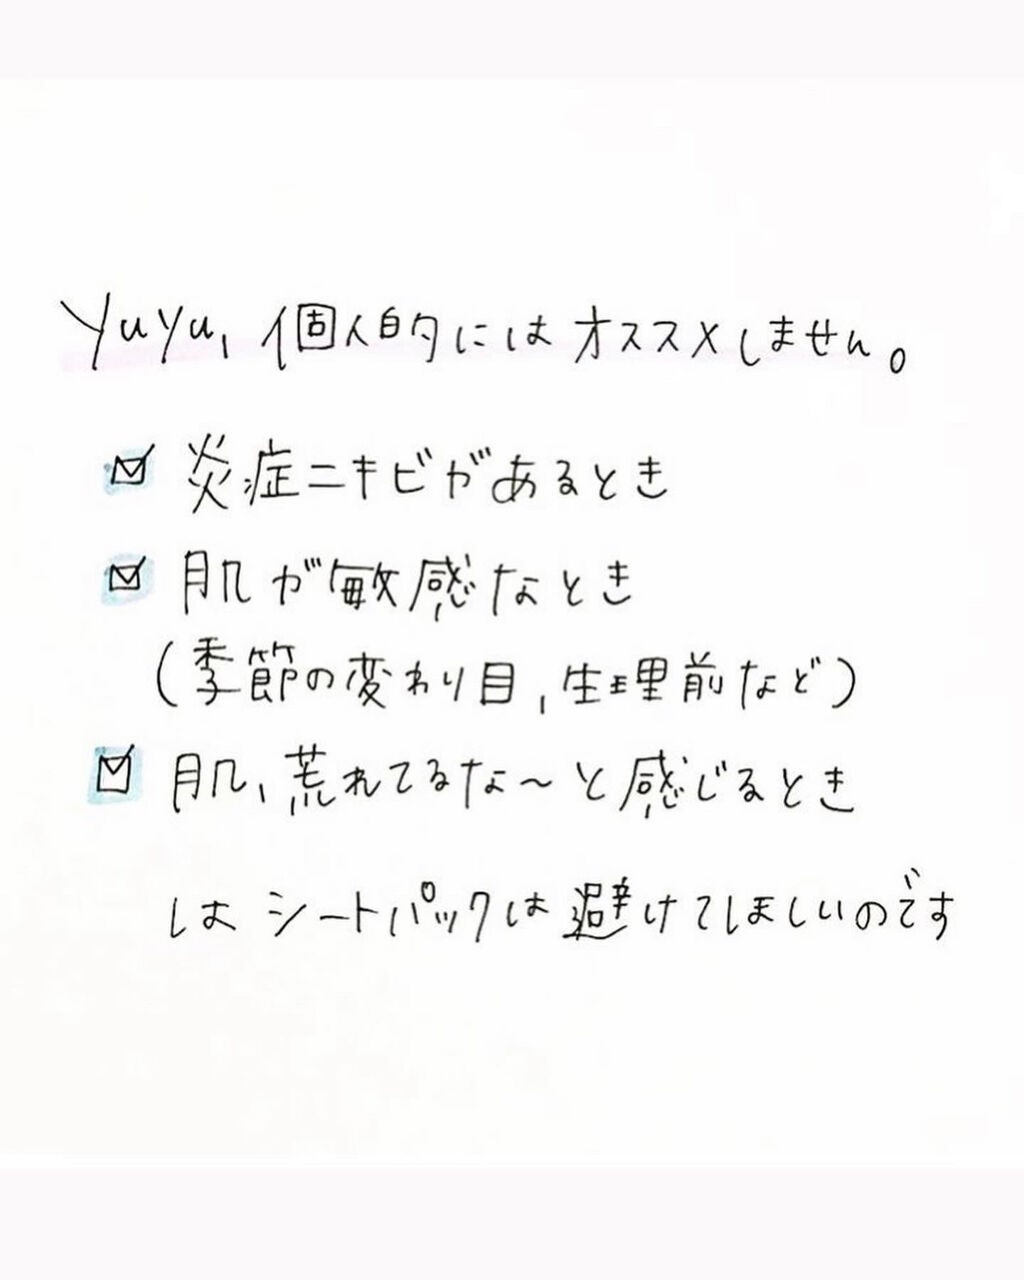 yuyu, 個人的にはオススメしません。
☑ 炎症ニキビがあるとき
☑ 肌が敏感なとき
(季節の変わり目,生理前など)
☑ 肌,荒れてるな〜と感じるとき
はシートパックは避けてほしいのです